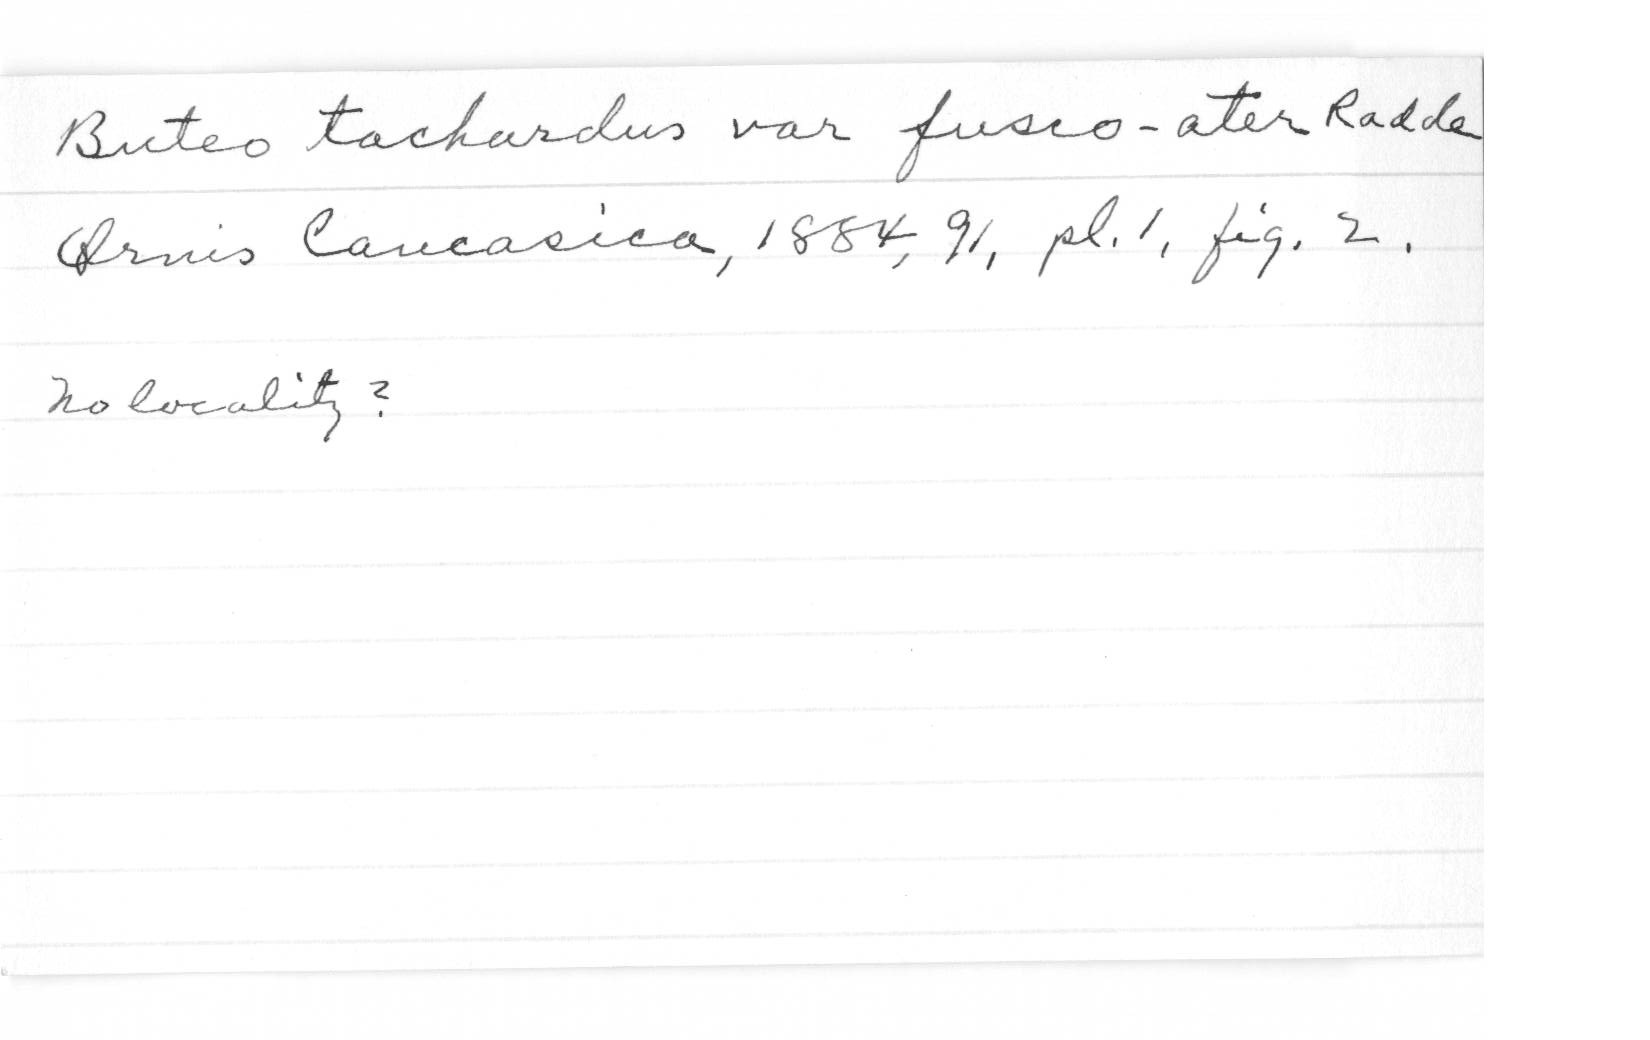 Buteo tachardus var fusco-ater Radde
Ornis Caucasica, 1884, 91, pl. 1, fig. 2.
No locality?